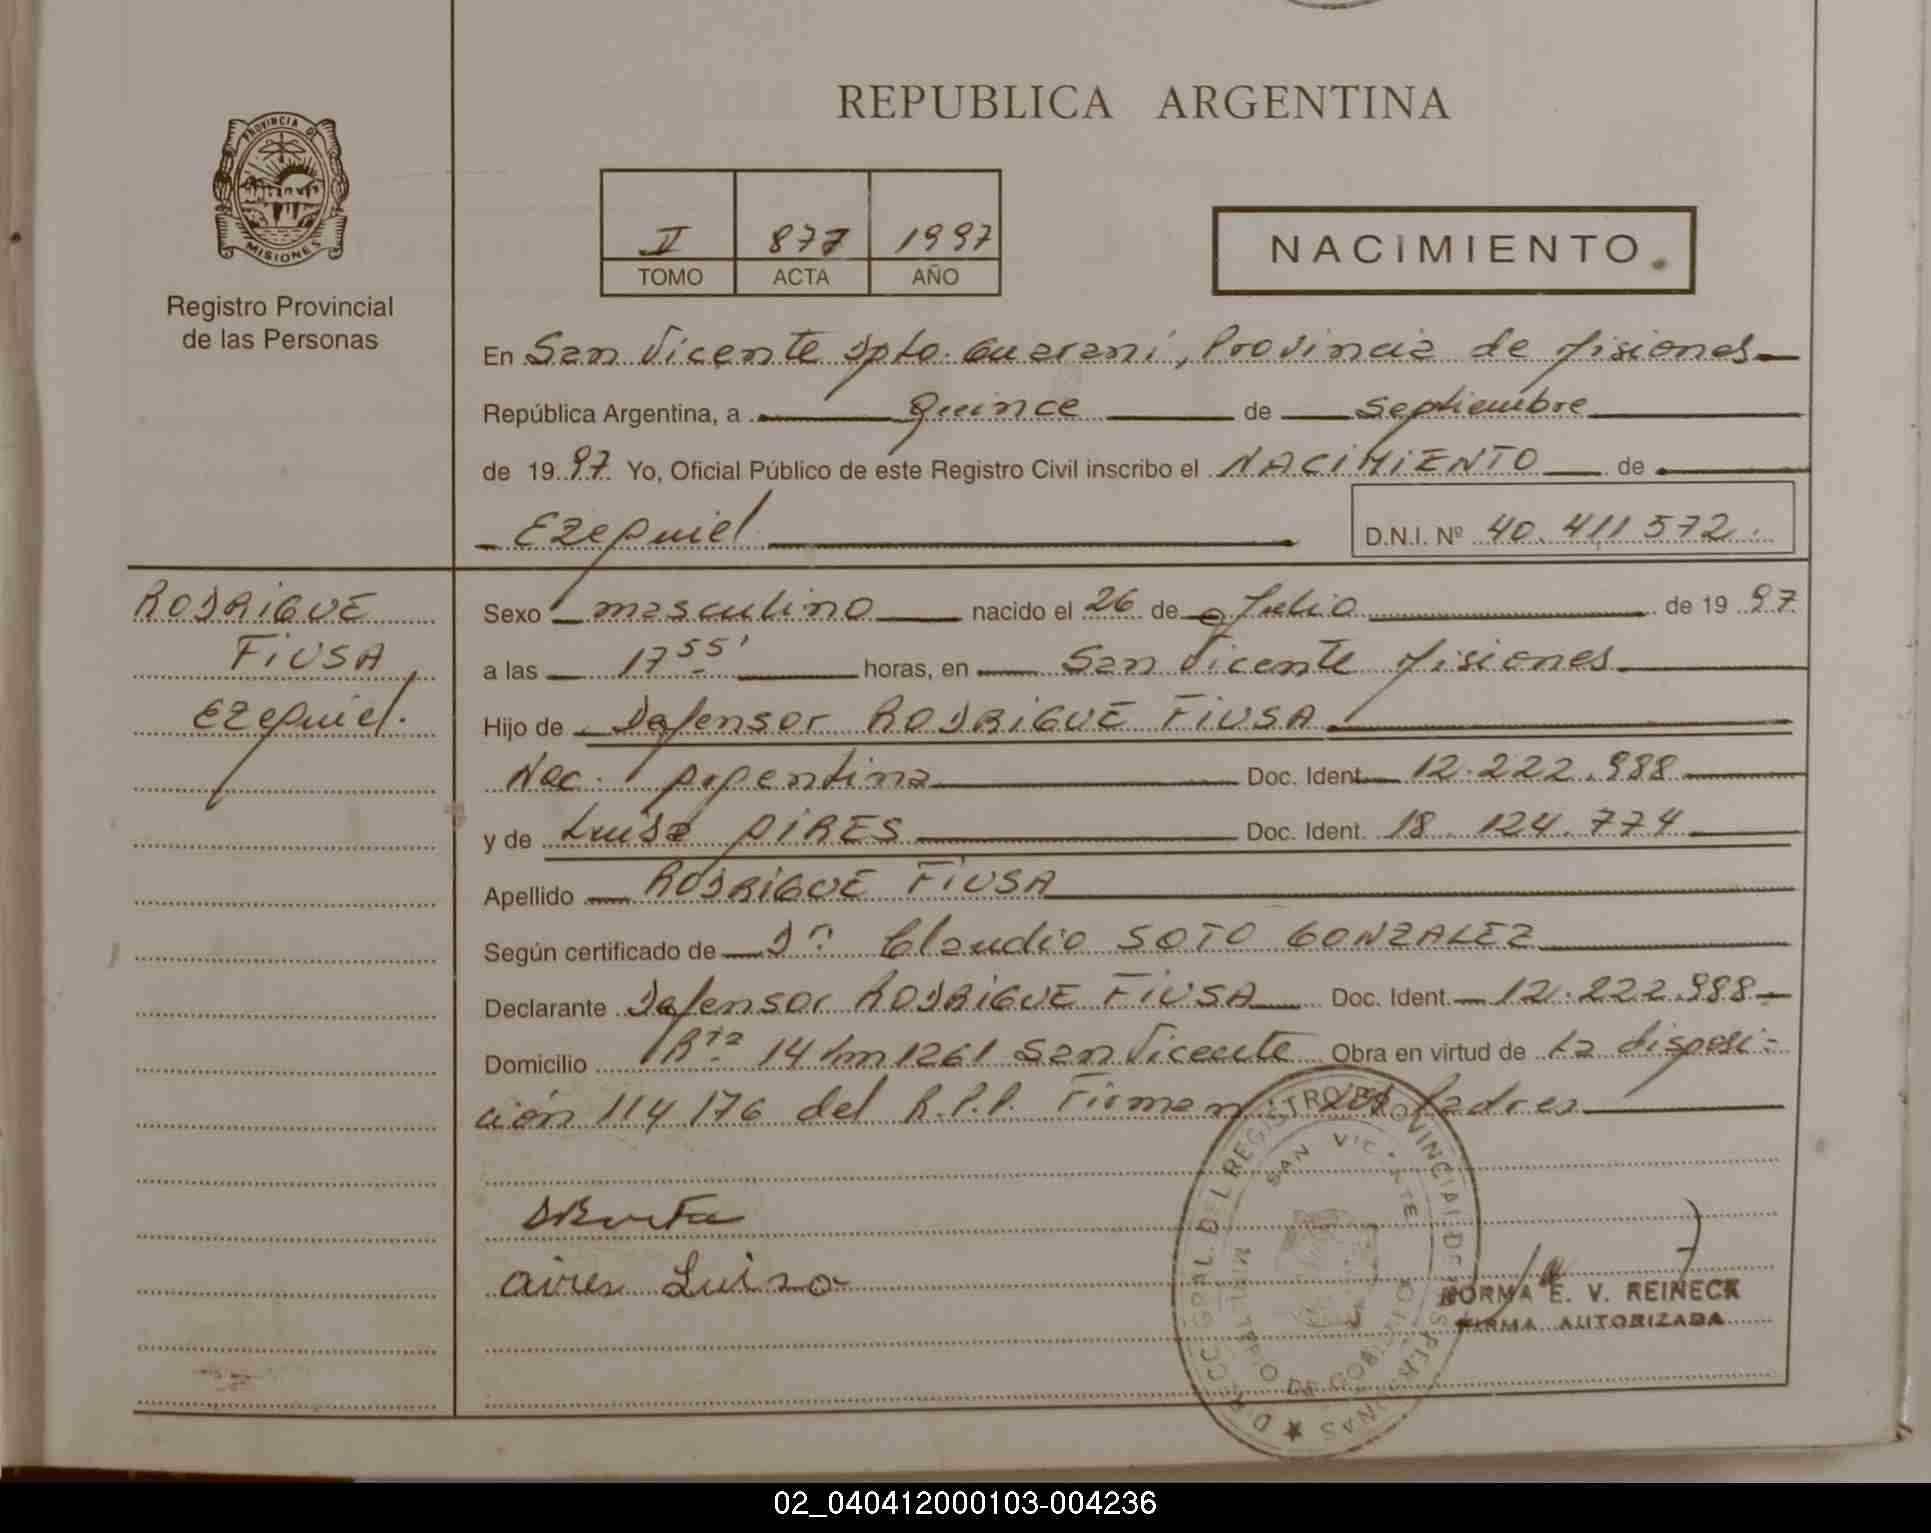 PROVINCIA DE
MISIONES
Registro Provincial
de las Personas
REPUBLICA ARGENTINA
II 877 1997
TOMO ACTA AÑO
NACIMIENTO
En San Vicente Dpto. Guaraní, Provincia de Misiones
República Argentina, a Quince de Septiembre
de 1997 Yo, Oficial Público de este Registro Civil inscribo el NACIMIENTO de
Ezequiel
D.N.I. Nº 40.411.572.
RODRIGUE
FIUSA
Ezequiel.
Sexo masculino nacido el 26 de Julio de 1997
a las 17 55' horas, en San Vicente Misiones
Hijo de Defensor RODRIGUE FIUSA
Nac. Argentina Doc. Ident. 12.222.988
y de Luisa PIRES Doc. Ident. 18.124.774
Apellido RODRIGUE FIUSA
Según certificado de Dr. Claudio SOTO GONZALEZ
Declarante Defensor RODRIGUE FIUSA Doc. Ident. 12.222.988
Domicilio Rta 14 km 1261 San Vicente Obra en virtud de La disposi-
ción 114/76 del R.P.P. Firman los Padres
DIRECC. GRAL. DEL REGISTRO PROVINCIAL DE LAS PERSONAS
SAN VICENTE
MINISTERIO DE GOBIERNO
Luisa
NORMA E. V. REINECK
FIRMA AUTORIZADA
02_040412000103-004236